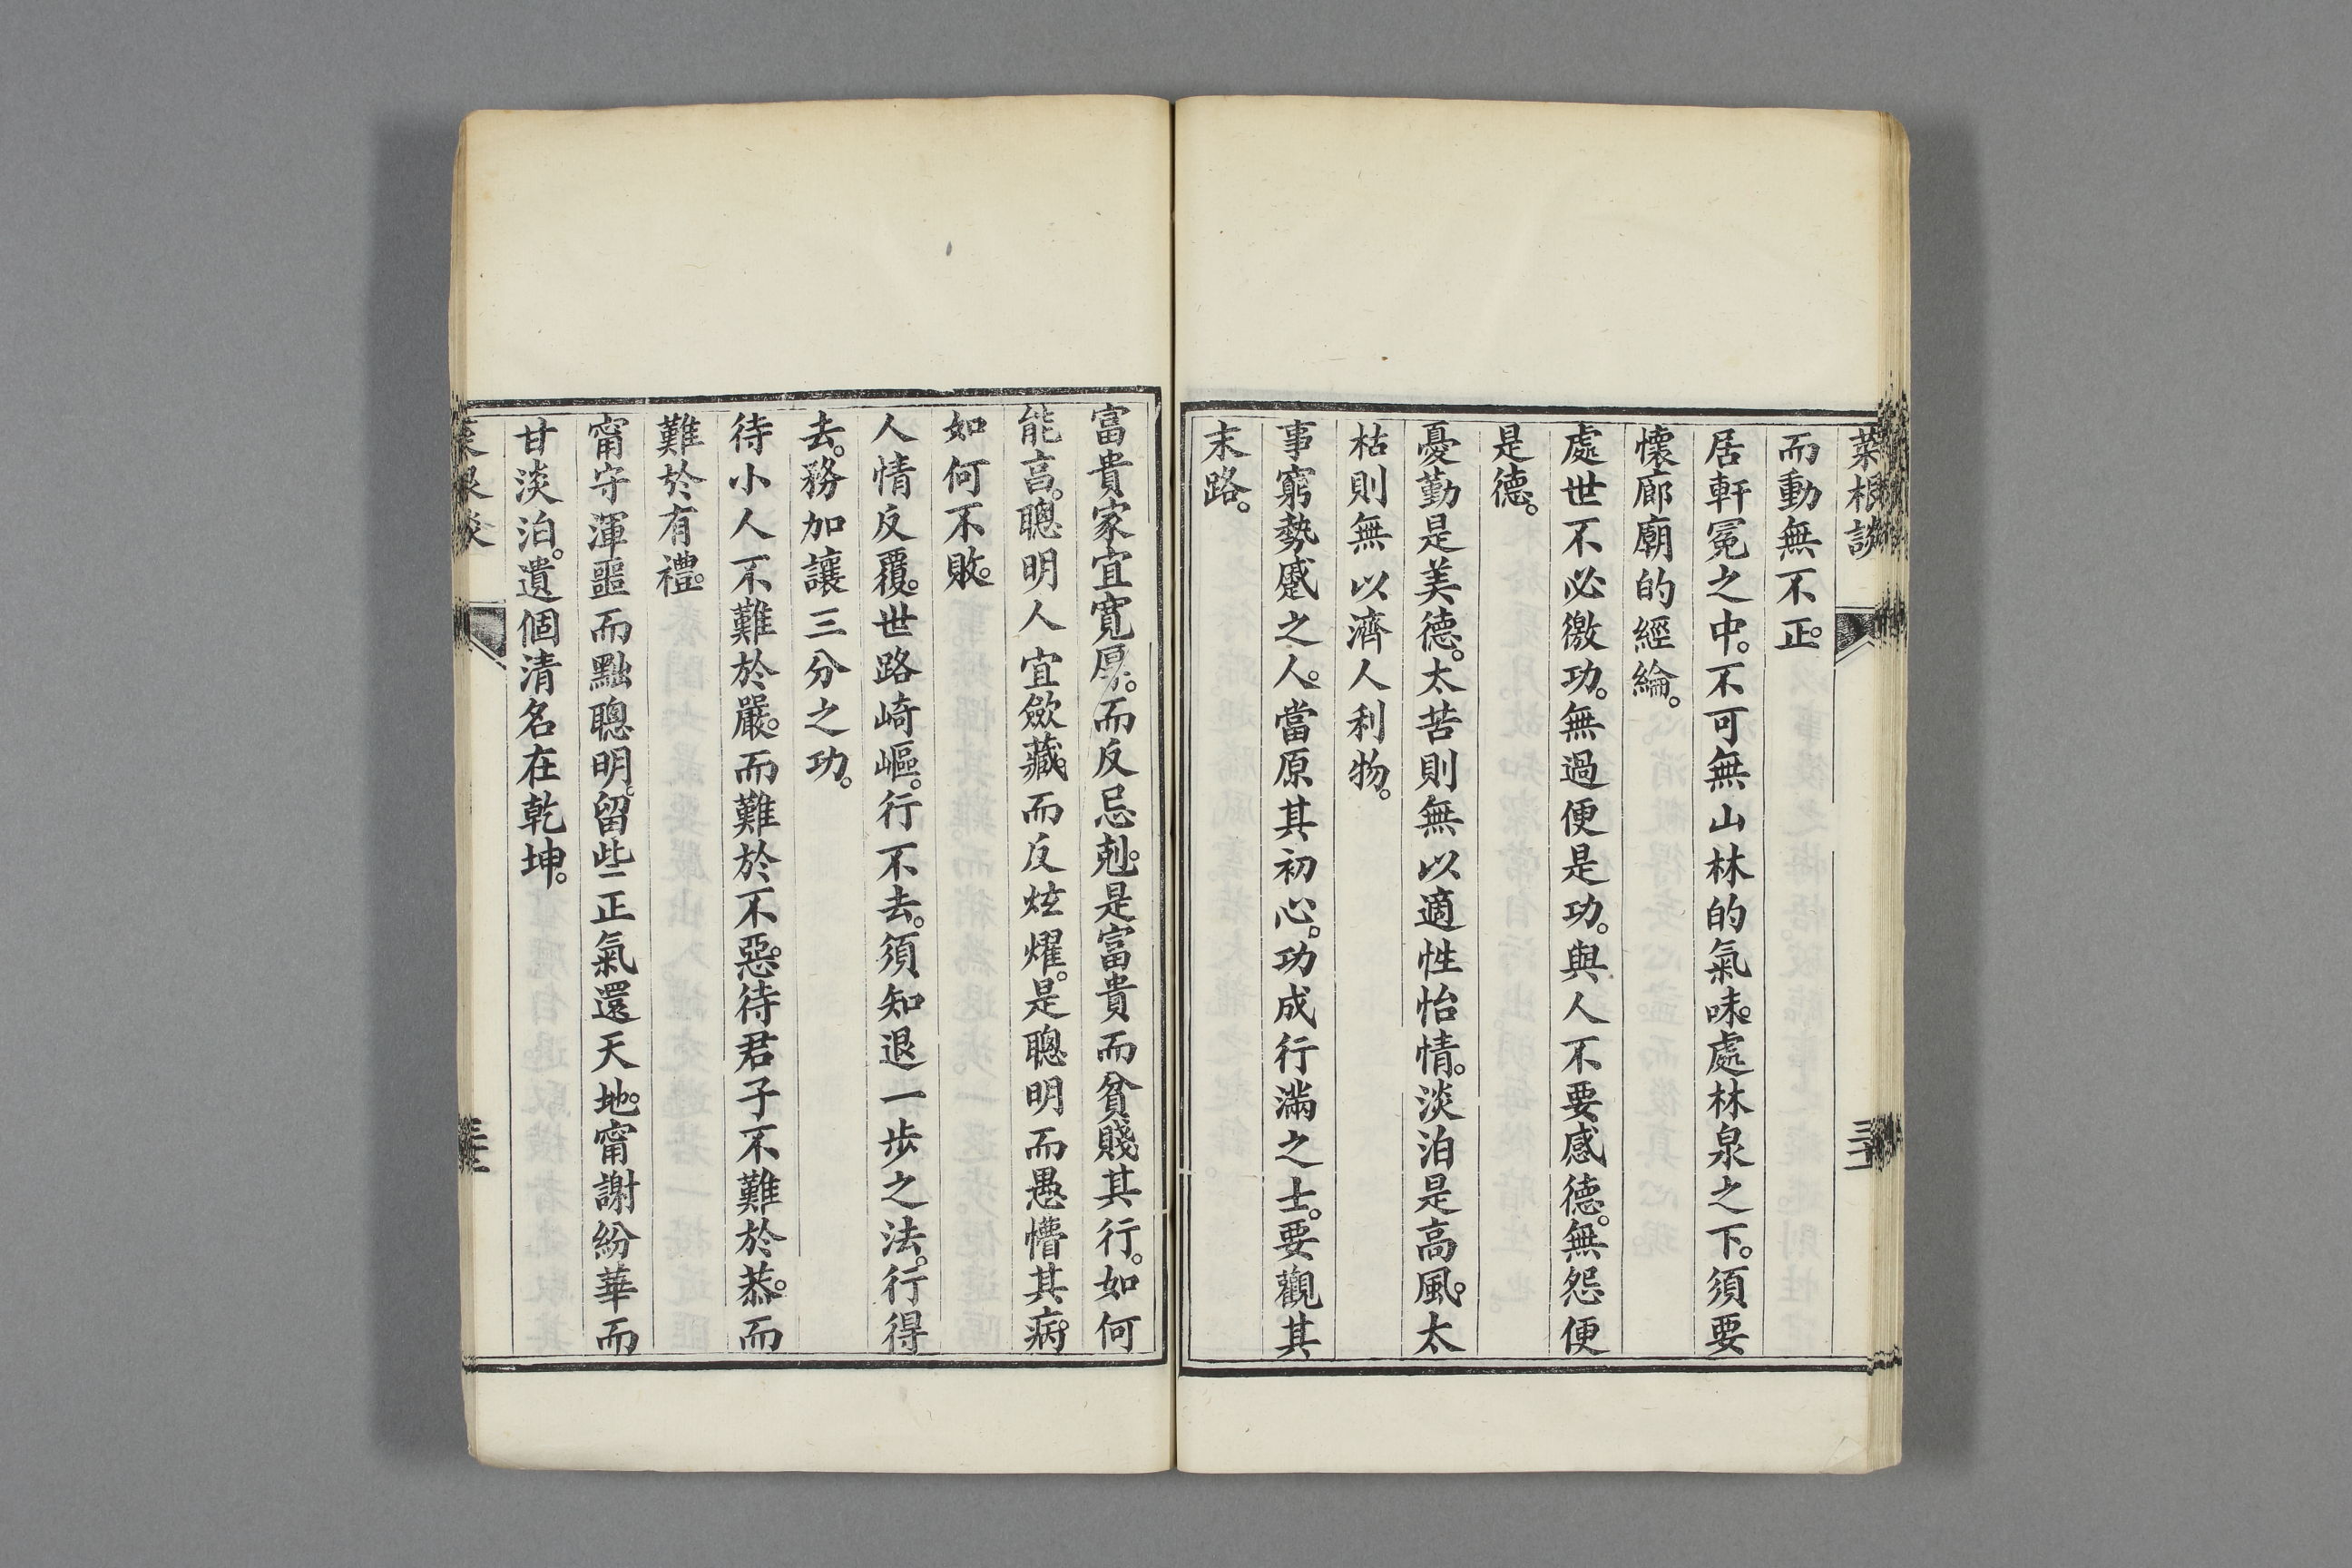 菜根談
三十一
而動無不正。
居軒冕之中。不可無山林的氣味。處林泉之下。須要
懷廊廟的經綸。
處世不必徼功。無過便是功。與人不要感德。無怨便
是德。
憂勤是美德。太苦則無以適性怡情。淡泊是高風。太
枯則無以濟人利物。
事窮勢蹙之人。當原其初心。功成行滿之士。要觀其
末路。
富貴家宜寬厚。而反忌剋。是富貴而貧賤其行。如何
能享。聰明人宜歛藏。而反炫燿。是聰明而愚懵其病。
如何不敗。
人情反覆。世路崎嶇。行不去。須知退一步之法。行得
去。務加讓三分之功。
待小人不難於嚴。而難於不惡。待君子不難於恭。而
難於有禮。
甯守渾噩而黜聰明。留些正氣還天地。甯謝紛華而
甘淡泊。遺個清名在乾坤。
菜根談